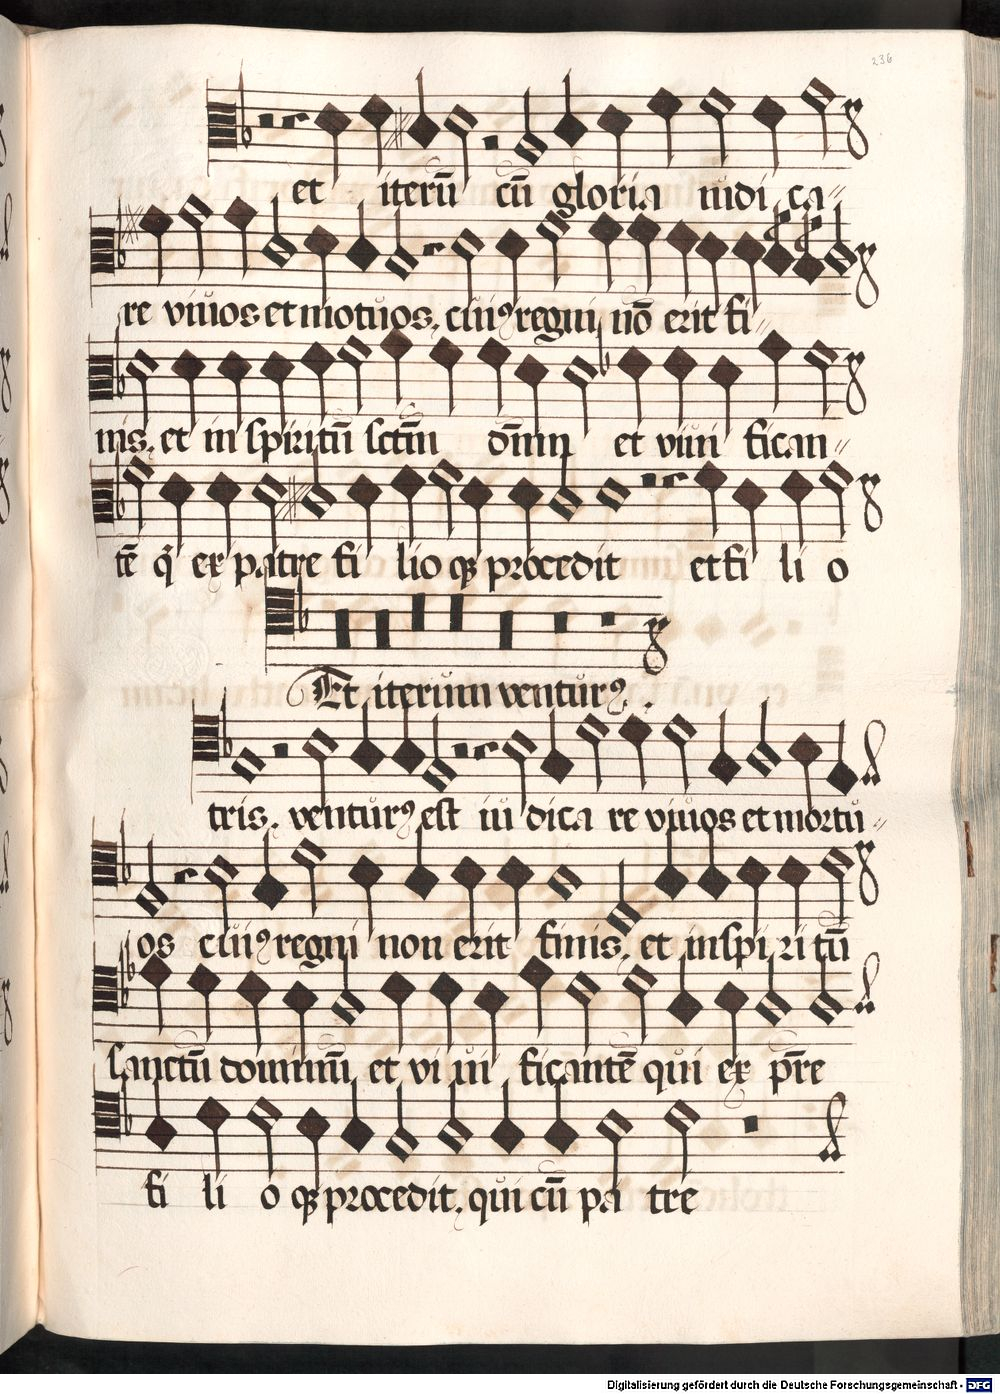 236
et iterū cū gloria iudi ca-
re viuos et motuos, cuiꝰ regni nō erit fi-
nis, et in spiritū sctm̄ dn̄m et viui fican-
tē q̄ ex patre fi lio qꝫ procedit et fi li o
Et iterum venturꝰ.
tris, venturꝰ est iu dica re viuos et mortu-
os cuiꝰ regni non erit finis, et in spi ri tū
sanctū dominū et vi ui ficantē qui ex pr̄e
fi li o qꝫ procedit, qui cū pa tre
Digitalisierung gefördert durch die Deutsche Forschungsgemeinschaft - DFG